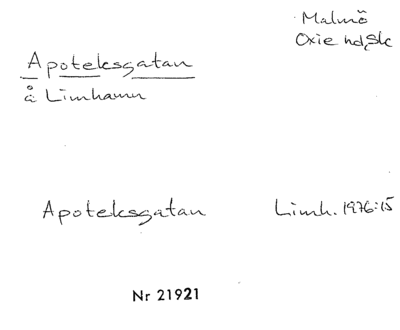 Malmö
Oxie hd, Sk
Apoteksgatan
å Limhamn
Apoteksgatan Limh. 1976:15
Nr 21921